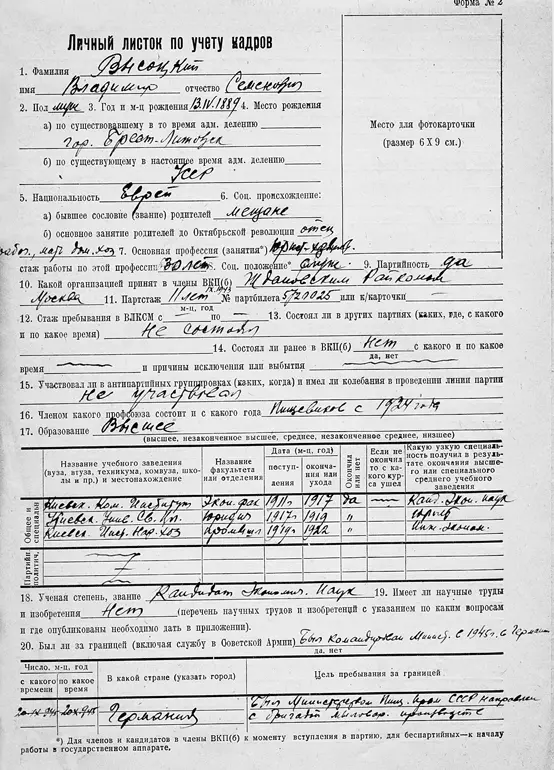 Форма № 2
Личный листок по учету кадров
1. Фамилия Высоцкий
имя Владимир отчество Семенович
2. Пол муж 3. Год и м-ц рождения 13.IV.1889 4. Место рождения
а) по существовавшему в то время адм. делению
гор. Брест-Литовск
б) по существующему в настоящее время адм. делению
Место для фотокарточки
(размер 6 X 9 см.)
5. Национальность Еврей 6. Соц. происхождение:
а) бывшее сословие (звание) родителей мещане
б) основное занятие родителей до Октябрьской революции отец
рабоч., мать дом. хоз 7. Основная профессия (занятия*)
стаж работы по этой профессии 30 лет 8. Соц. положение* служ. 9. Партийность да
10. Какой организацией принят в члены ВКП(б) Ждановским Райкомом
Москва 11. Партстаж 11 лет № партбилета 5121025 или к/карточки —
м-ц, год
12. Стаж пребывания в ВЛКСМ с — по — 13. Состоял ли в других партиях (каких, где, с какого
и по какое время) Не состоял
14. Состоял ли ранее в ВКП(б) нет с какого и по какое
да, нет
время и причины исключения или выбытия
15. Участвовал ли в антипартийных группировках (каких, когда) и имел ли колебания в проведении линии партии
Не участвовал
16. Членом какого профсоюза состоит и с какого года Пищевиков с 1924 года
17. Образование Высшее
(высшее, незаконченное высшее, среднее, незаконченное среднее, низшее)
Название учебного заведения (вуза, втуза, техникума, комвуза, школы и пр.) и местонахождение
Название факультета или отделения
Дата (м-ц, год)
поступления
окончания или ухода
Окончил или нет
Если не окончил то с какого курса ушел
Какую узкую специальность получил в результате окончания высшего или специального среднего учебного заведения
Общее и специальн
Киевск. Ком. Институт Экон. фак 1911г 1917 да — Канд. Экон. наук
Киевск. Унив. Св. Вл. Юридич 1917г 1919 " Юрист
Киевск. Инст. Нар. Хоз Промышл 1919г 1922 " Инж. Эконом.
Партийн. политич,
18. Ученая степень, звание Кандидат Экономич. Наук 19. Имеет ли научные труды
и изобретения Нет (перечень научных трудов и изобретений с указанием по каким вопросам
и где опубликованы необходимо дать в приложении).
20. Был ли за границей (включая службу в Советской Армии) Был командирован Минист. с 1945г. в Германию
да, нет
Число, м-ц, год
с какого времени
по какое время
В какой стране (указать город)
Цель пребывания за границей
Германия
Был Министерством Пищ. Пром СССР направлен
с бригадой мыловар. производств
*) Для членов и кандидатов в члены ВКП(б) к моменту вступления в партию, для беспартийных—к началу
работы в государственном аппарате.